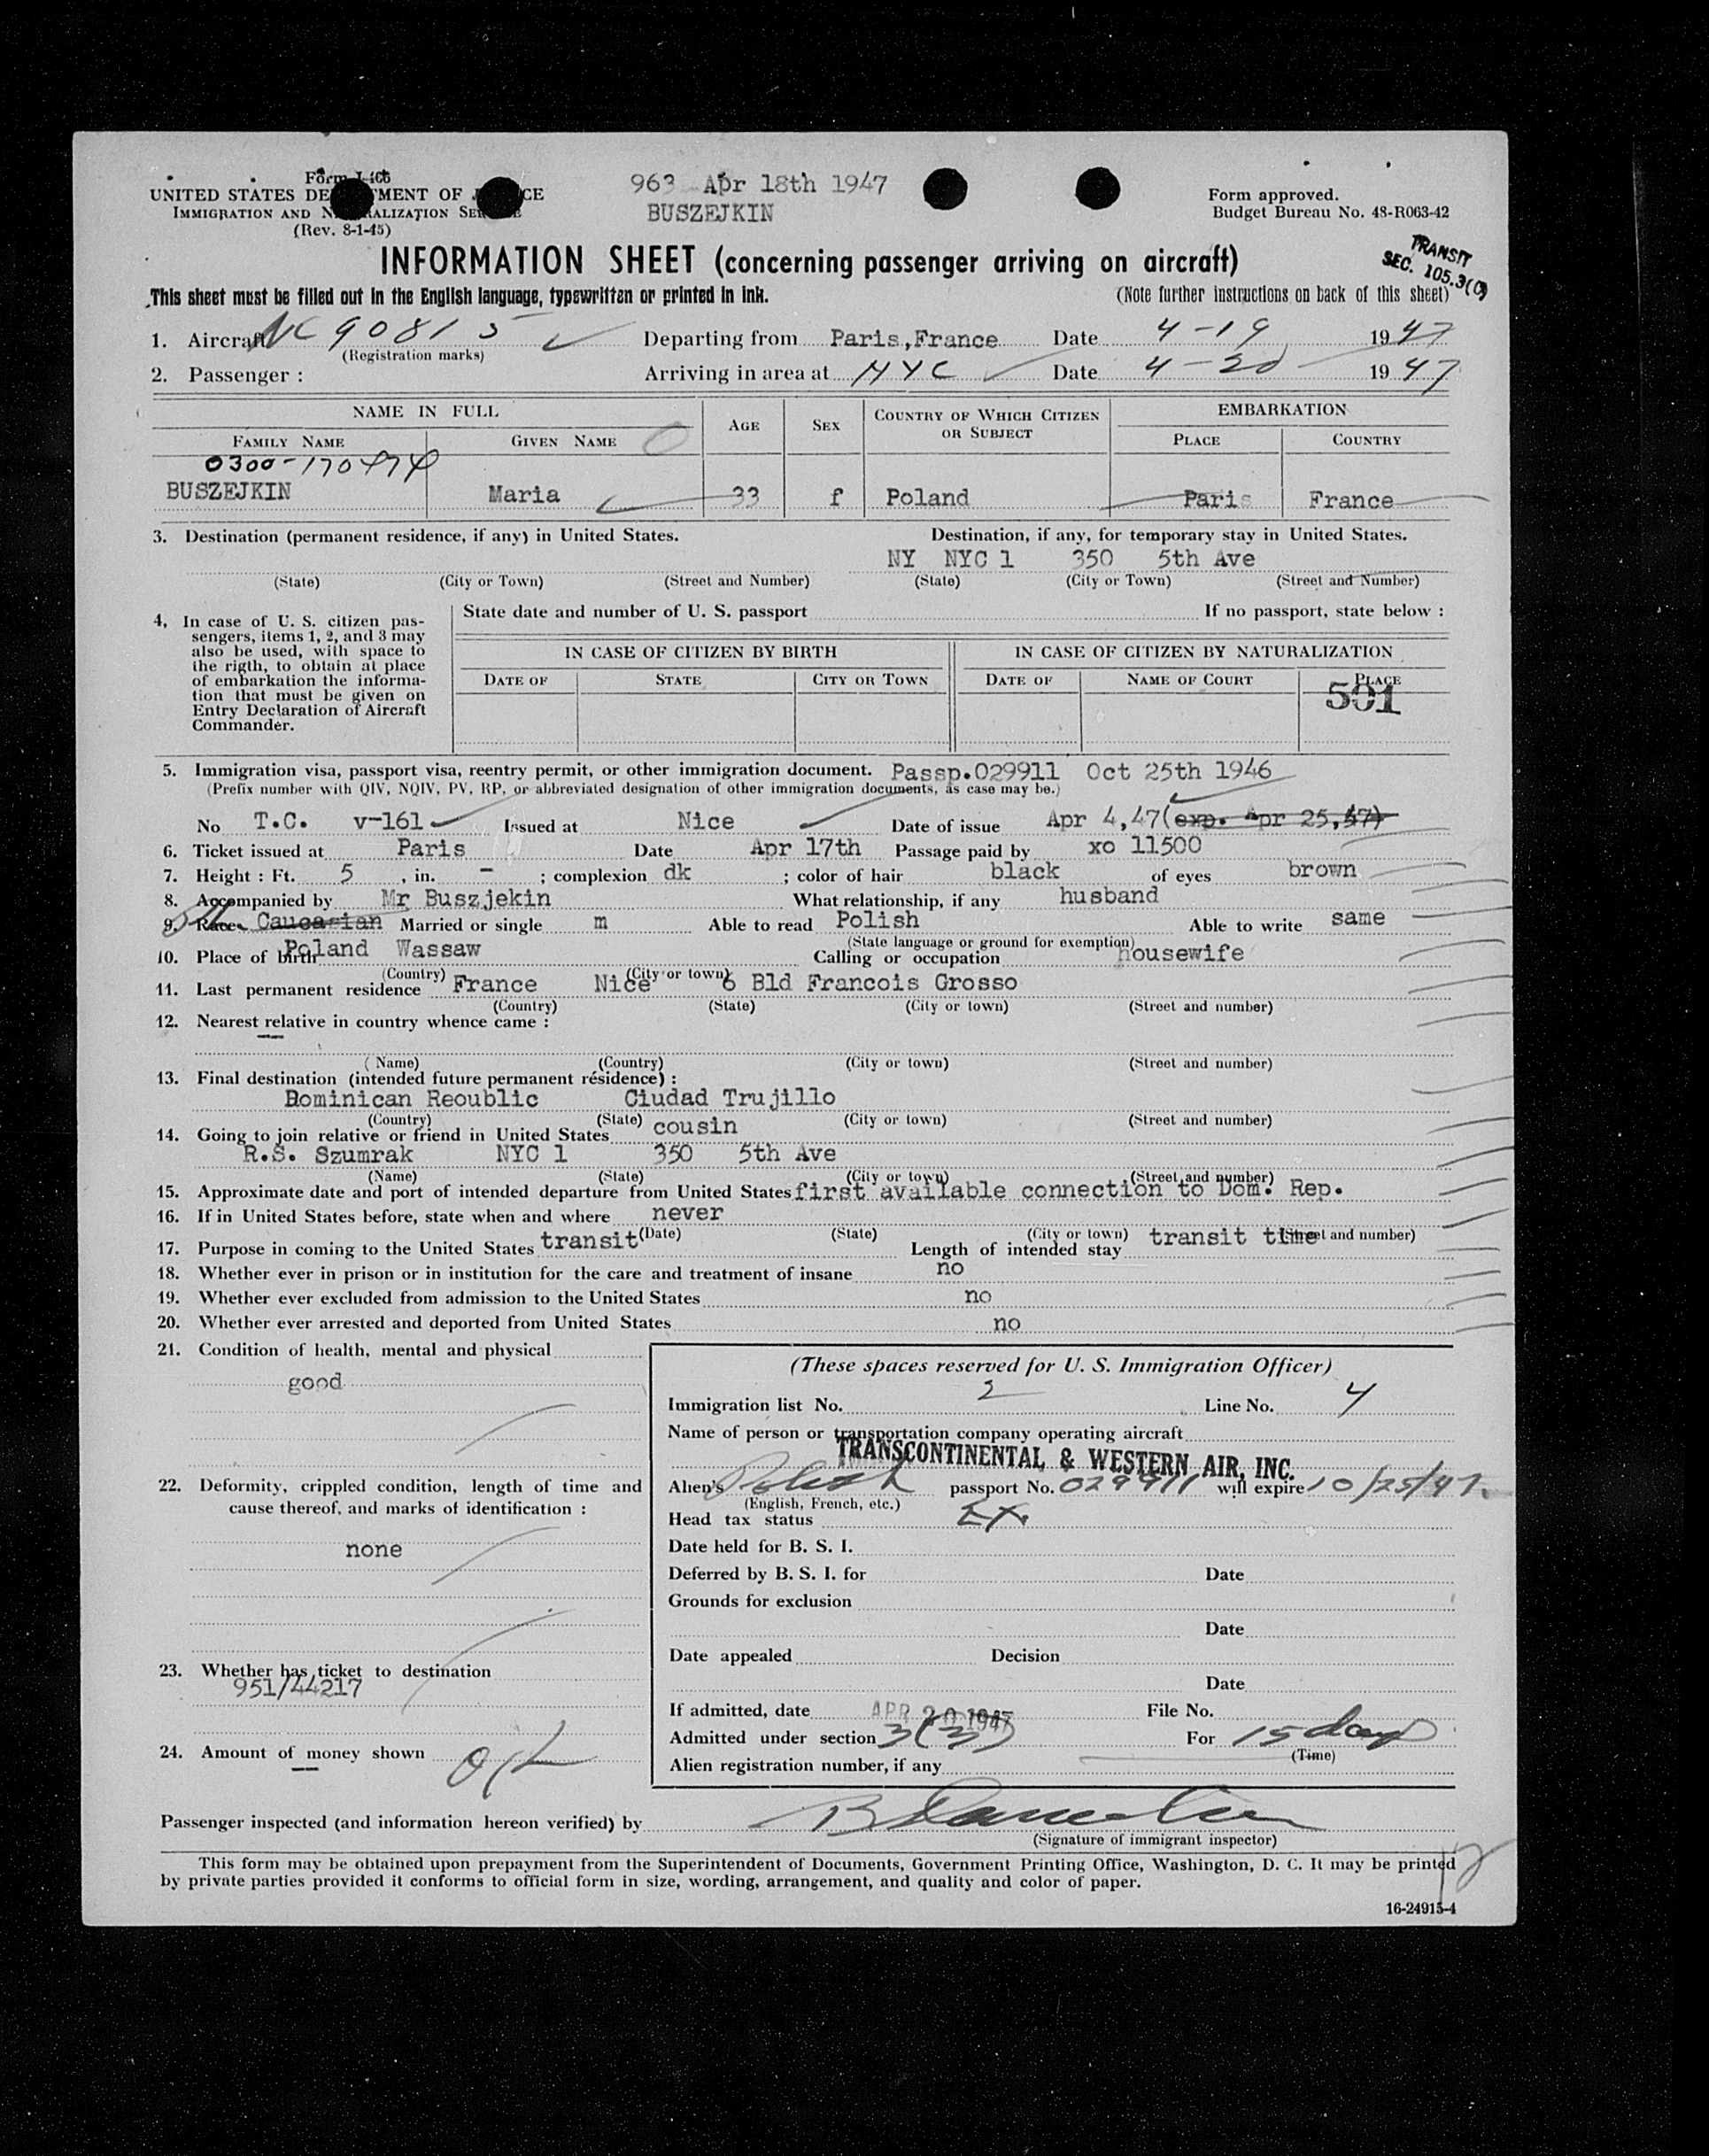 Form I-466
UNITED STATES DEPARTMENT OF JUSTICE
IMMIGRATION AND NATURALIZATION SERVICE
(Rev. 8-1-45)
963 Apr 18th 1947
BUSZEJKIN
Form approved.
Budget Bureau No. 43-R063-42
INFORMATION SHEET (concerning passenger arriving on aircraft)
TRANSIT
SEC. 105.3(C)
This sheet must be filled out in the English language, typewritten or printed in ink. (Note further instructions on back of this sheet)
1. Aircraft NC 90815 Departing from Paris,France Date 4-19 1947
(Registration marks)
2. Passenger : Arriving in area at NYC Date 4-20 1947
NAME IN FULL AGE SEX COUNTRY OF WHICH CITIZEN OR SUBJECT EMBARKATION
FAMILY NAME GIVEN NAME PLACE COUNTRY
0300-170474
BUSZEJKIN Maria 33 f Poland Paris France
3. Destination (permanent residence, if any) in United States. Destination, if any, for temporary stay in United States.
NY NYC 1 350 5th Ave
(State) (City or Town) (Street and Number) (State) (City or Town) (Street and Number)
4, In case of U. S. citizen pas-
sengers, items 1, 2, and 3 may
also be used, with space to
the rigth, to obtain at place
of embarkation the informa-
tion that must be given on
Entry Declaration of Aircraft
Commander.
State date and number of U. S. passport If no passport, state below :
IN CASE OF CITIZEN BY BIRTH IN CASE OF CITIZEN BY NATURALIZATION
DATE OF STATE CITY OR TOWN DATE OF NAME OF COURT PLACE
501
5. Immigration visa, passport visa, reentry permit, or other immigration document. Passp.029911 Oct 25th 1946
(Prefix number with QIV, NQIV, PV, RP, or abbreviated designation of other immigration documents, as case may be.)
No T.C. v-161 Issued at Nice Date of issue Apr 4,47(exp. Apr 25,47)
6. Ticket issued at Paris Date Apr 17th Passage paid by xo 11500
7. Height : Ft. 5 , in. - ; complexion dk ; color of hair black of eyes brown
8. Accompanied by Mr Buszjekin What relationship, if any husband
9. Race Caucasian Married or single m Able to read Polish Able to write same
(State language or ground for exemption)
10. Place of birth Poland Wassaw Calling or occupation housewife
(Country) (City or town)
11. Last permanent residence France Nice 6 Bld Francois Grosso
(Country) (State) (City or town) (Street and number)
12. Nearest relative in country whence came :
( Name) (Country) (City or town) (Street and number)
13. Final destination (intended future permanent résidence) :
Dominican Reoublic Ciudad Trujillo
(Country) (State) (City or town) (Street and number)
14. Going to join relative or friend in United States cousin
R.S. Szumrak NYC 1 350 5th Ave
(Name) (State) (City or town) (Street and number)
15. Approximate date and port of intended departure from United States first available connection to Dom. Rep.
16. If in United States before, state when and where never
(Date) (State) (City or town) (Street and number)
17. Purpose in coming to the United States transit Length of intended stay transit time
18. Whether ever in prison or in institution for the care and treatment of insane no
19. Whether ever excluded from admission to the United States no
20. Whether ever arrested and deported from United States no
21. Condition of health, mental and physical
good
22. Deformity, crippled condition, length of time and
cause thereof, and marks of identification :
none
23. Whether has ticket to destination
951/44217
24. Amount of money shown
(These spaces reserved for U. S. Immigration Officer)
Immigration list No. 2 Line No. 4
Name of person or transportation company operating aircraft
TRANSCONTINENTAL & WESTERN AIR, INC.
Alien's Polish passport No. 029911 will expire 10/25/47.
(English, French, etc.)
Head tax status Ex.
Date held for B. S. I.
Deferred by B. S. I. for Date
Grounds for exclusion
Date
Date appealed Decision
Date
If admitted, date APR 20 1947 File No.
Admitted under section 3(3) For 15 days
(Time)
Alien registration number, if any
Passenger inspected (and information hereon verified) by
(Signature of immigrant inspector)
This form may be obtained upon prepayment from the Superintendent of Documents, Government Printing Office, Washington, D. C. It may be printed
by private parties provided it conforms to official form in size, wording, arrangement, and quality and color of paper.
16-24915-4